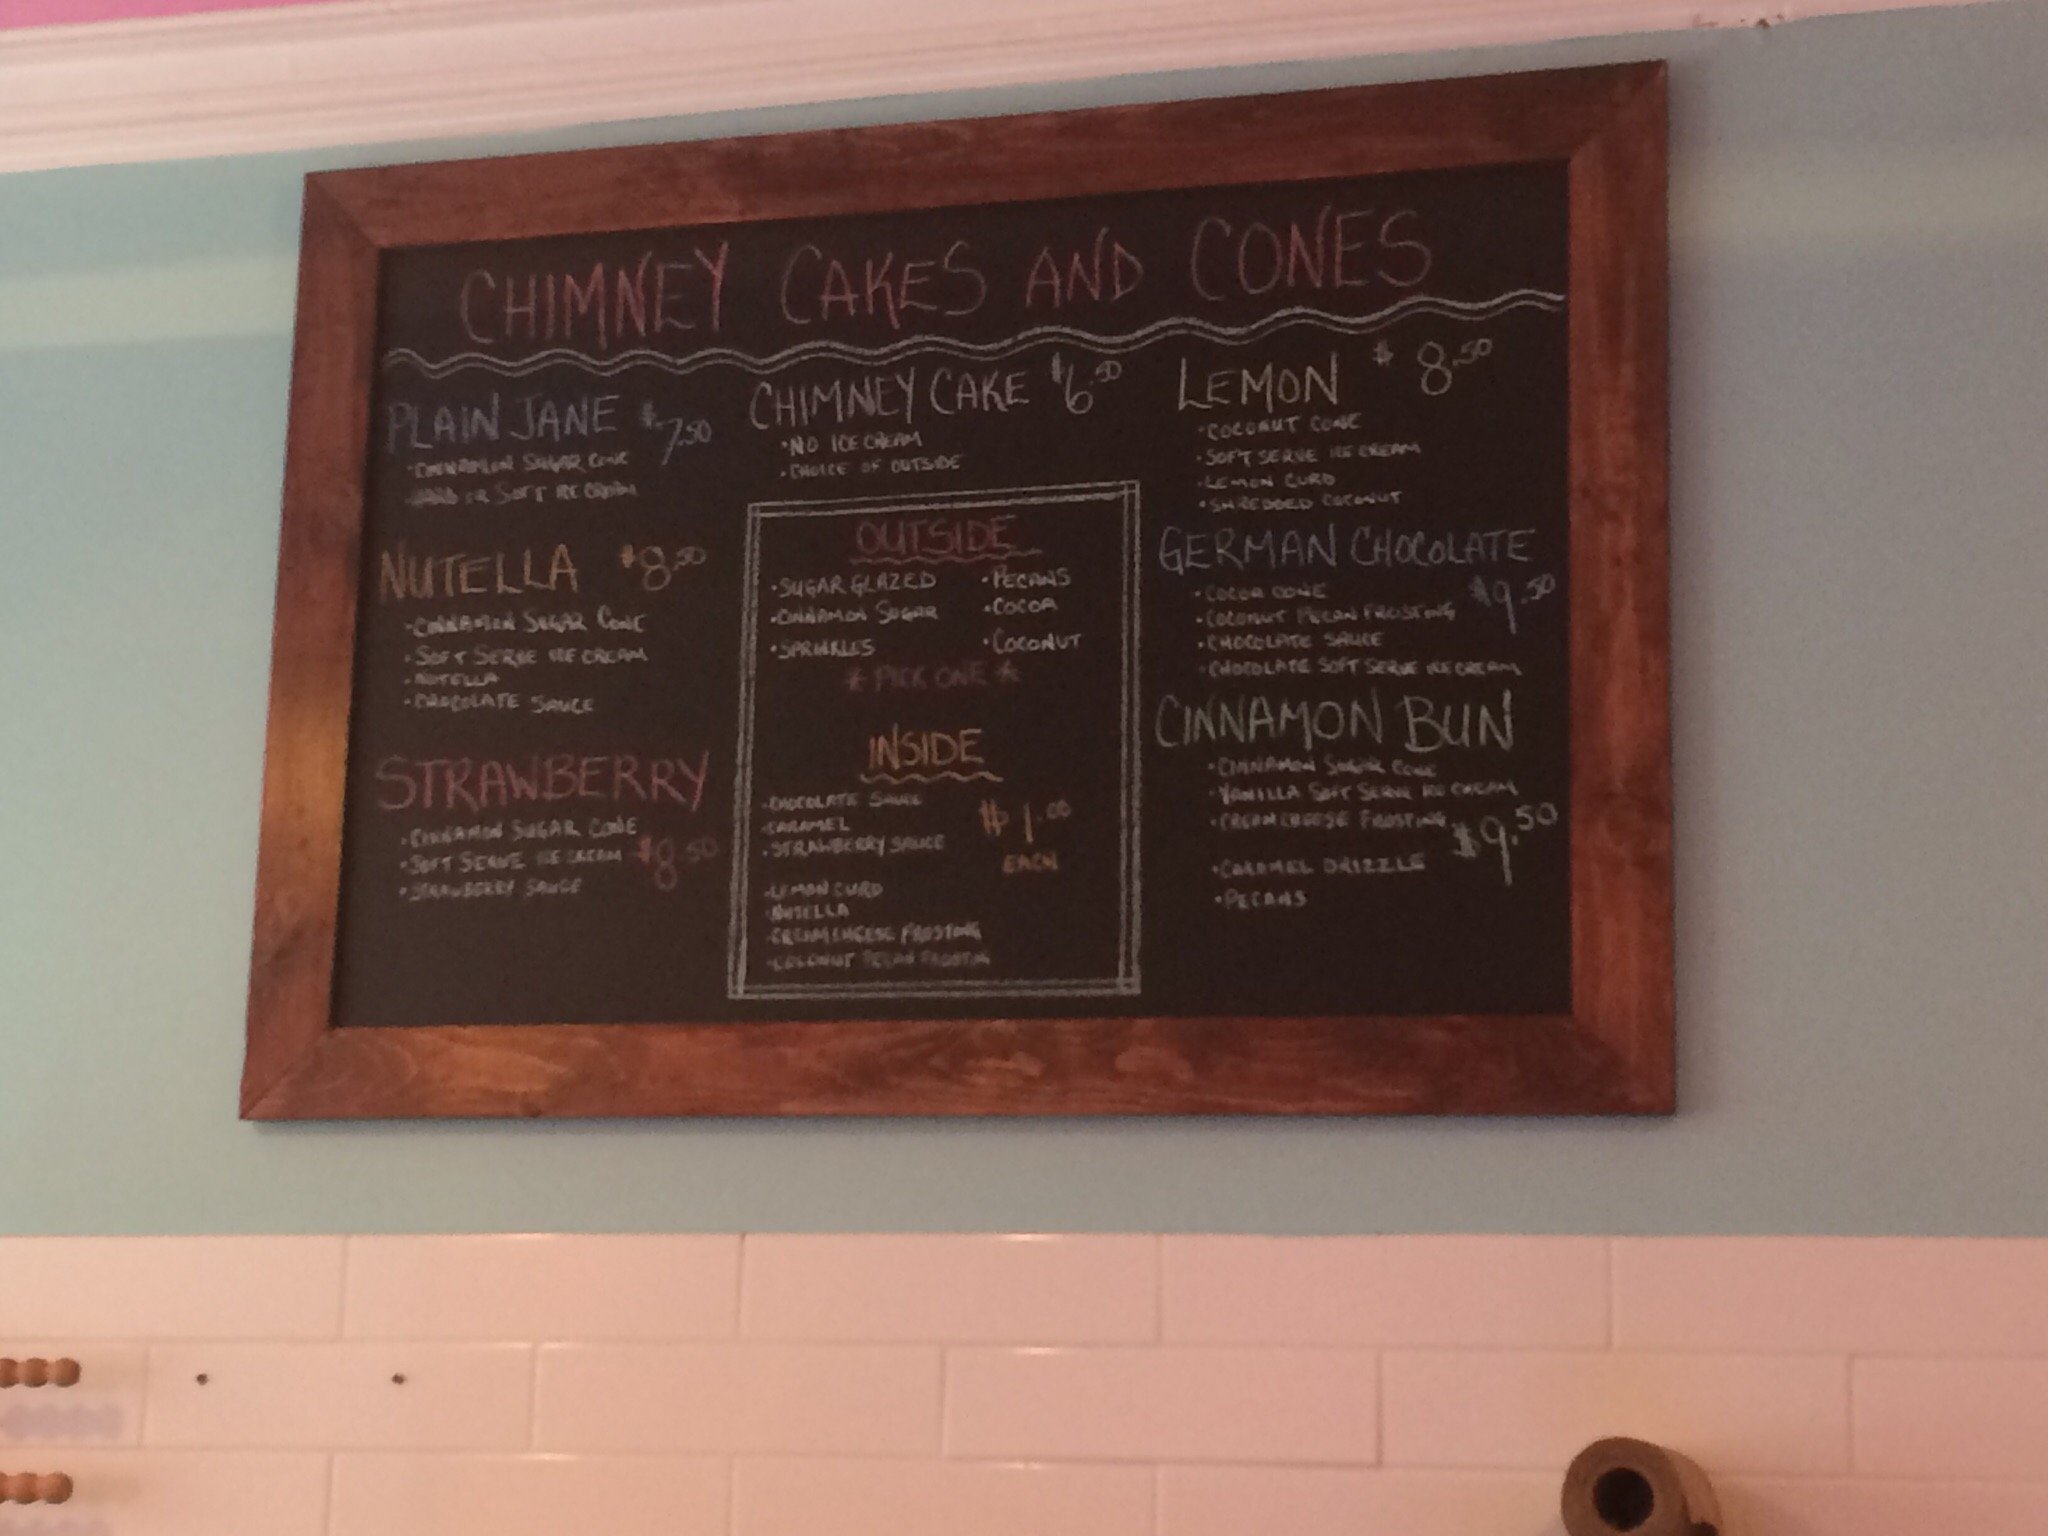 CHIMNEY CAKES AND CONES
PLAIN JANE $7.50
• CINNAMON SUGAR CONE
• HARD OR SOFT ICE CREAM
NUTELLA $8.50
• CINNAMON SUGAR CONE
• SOFT SERVE ICE CREAM
• NUTELLA
• CHOCOLATE SAUCE
STRAWBERRY
• CINNAMON SUGAR CONE
• SOFT SERVE ICE CREAM $8.50
• STRAWBERRY SAUCE
CHIMNEY CAKE $6.50
• NO ICE CREAM
• CHOICE OF OUTSIDE
OUTSIDE
• SUGAR GLAZED • PECANS
• CINNAMON SUGAR • COCOA
• SPRINKLES • COCONUT
* PICK ONE *
INSIDE
• CHOCOLATE SAUCE
• CARAMEL $1.00
• STRAWBERRY SAUCE EACH
• LEMON CURD
• NUTELLA
• CREAM CHEESE FROSTING
• COCONUT PECAN FROSTIN
LEMON $8.50
• COCONUT CONE
• SOFT SERVE ICE CREAM
• LEMON CURD
• SHREDDED COCONUT
GERMAN CHOCOLATE
• COCOA CONE
• COCONUT PECAN FROSTING $9.50
• CHOCOLATE SAUCE
• CHOCOLATE SOFT SERVE ICE CREAM
CINNAMON BUN
• CINNAMON SUGAR CONE
• VANILLA SOFT SERVE ICE CREAM
• CREAM CHEESE FROSTING $9.50
• CARAMEL DRIZZLE
• PECANS